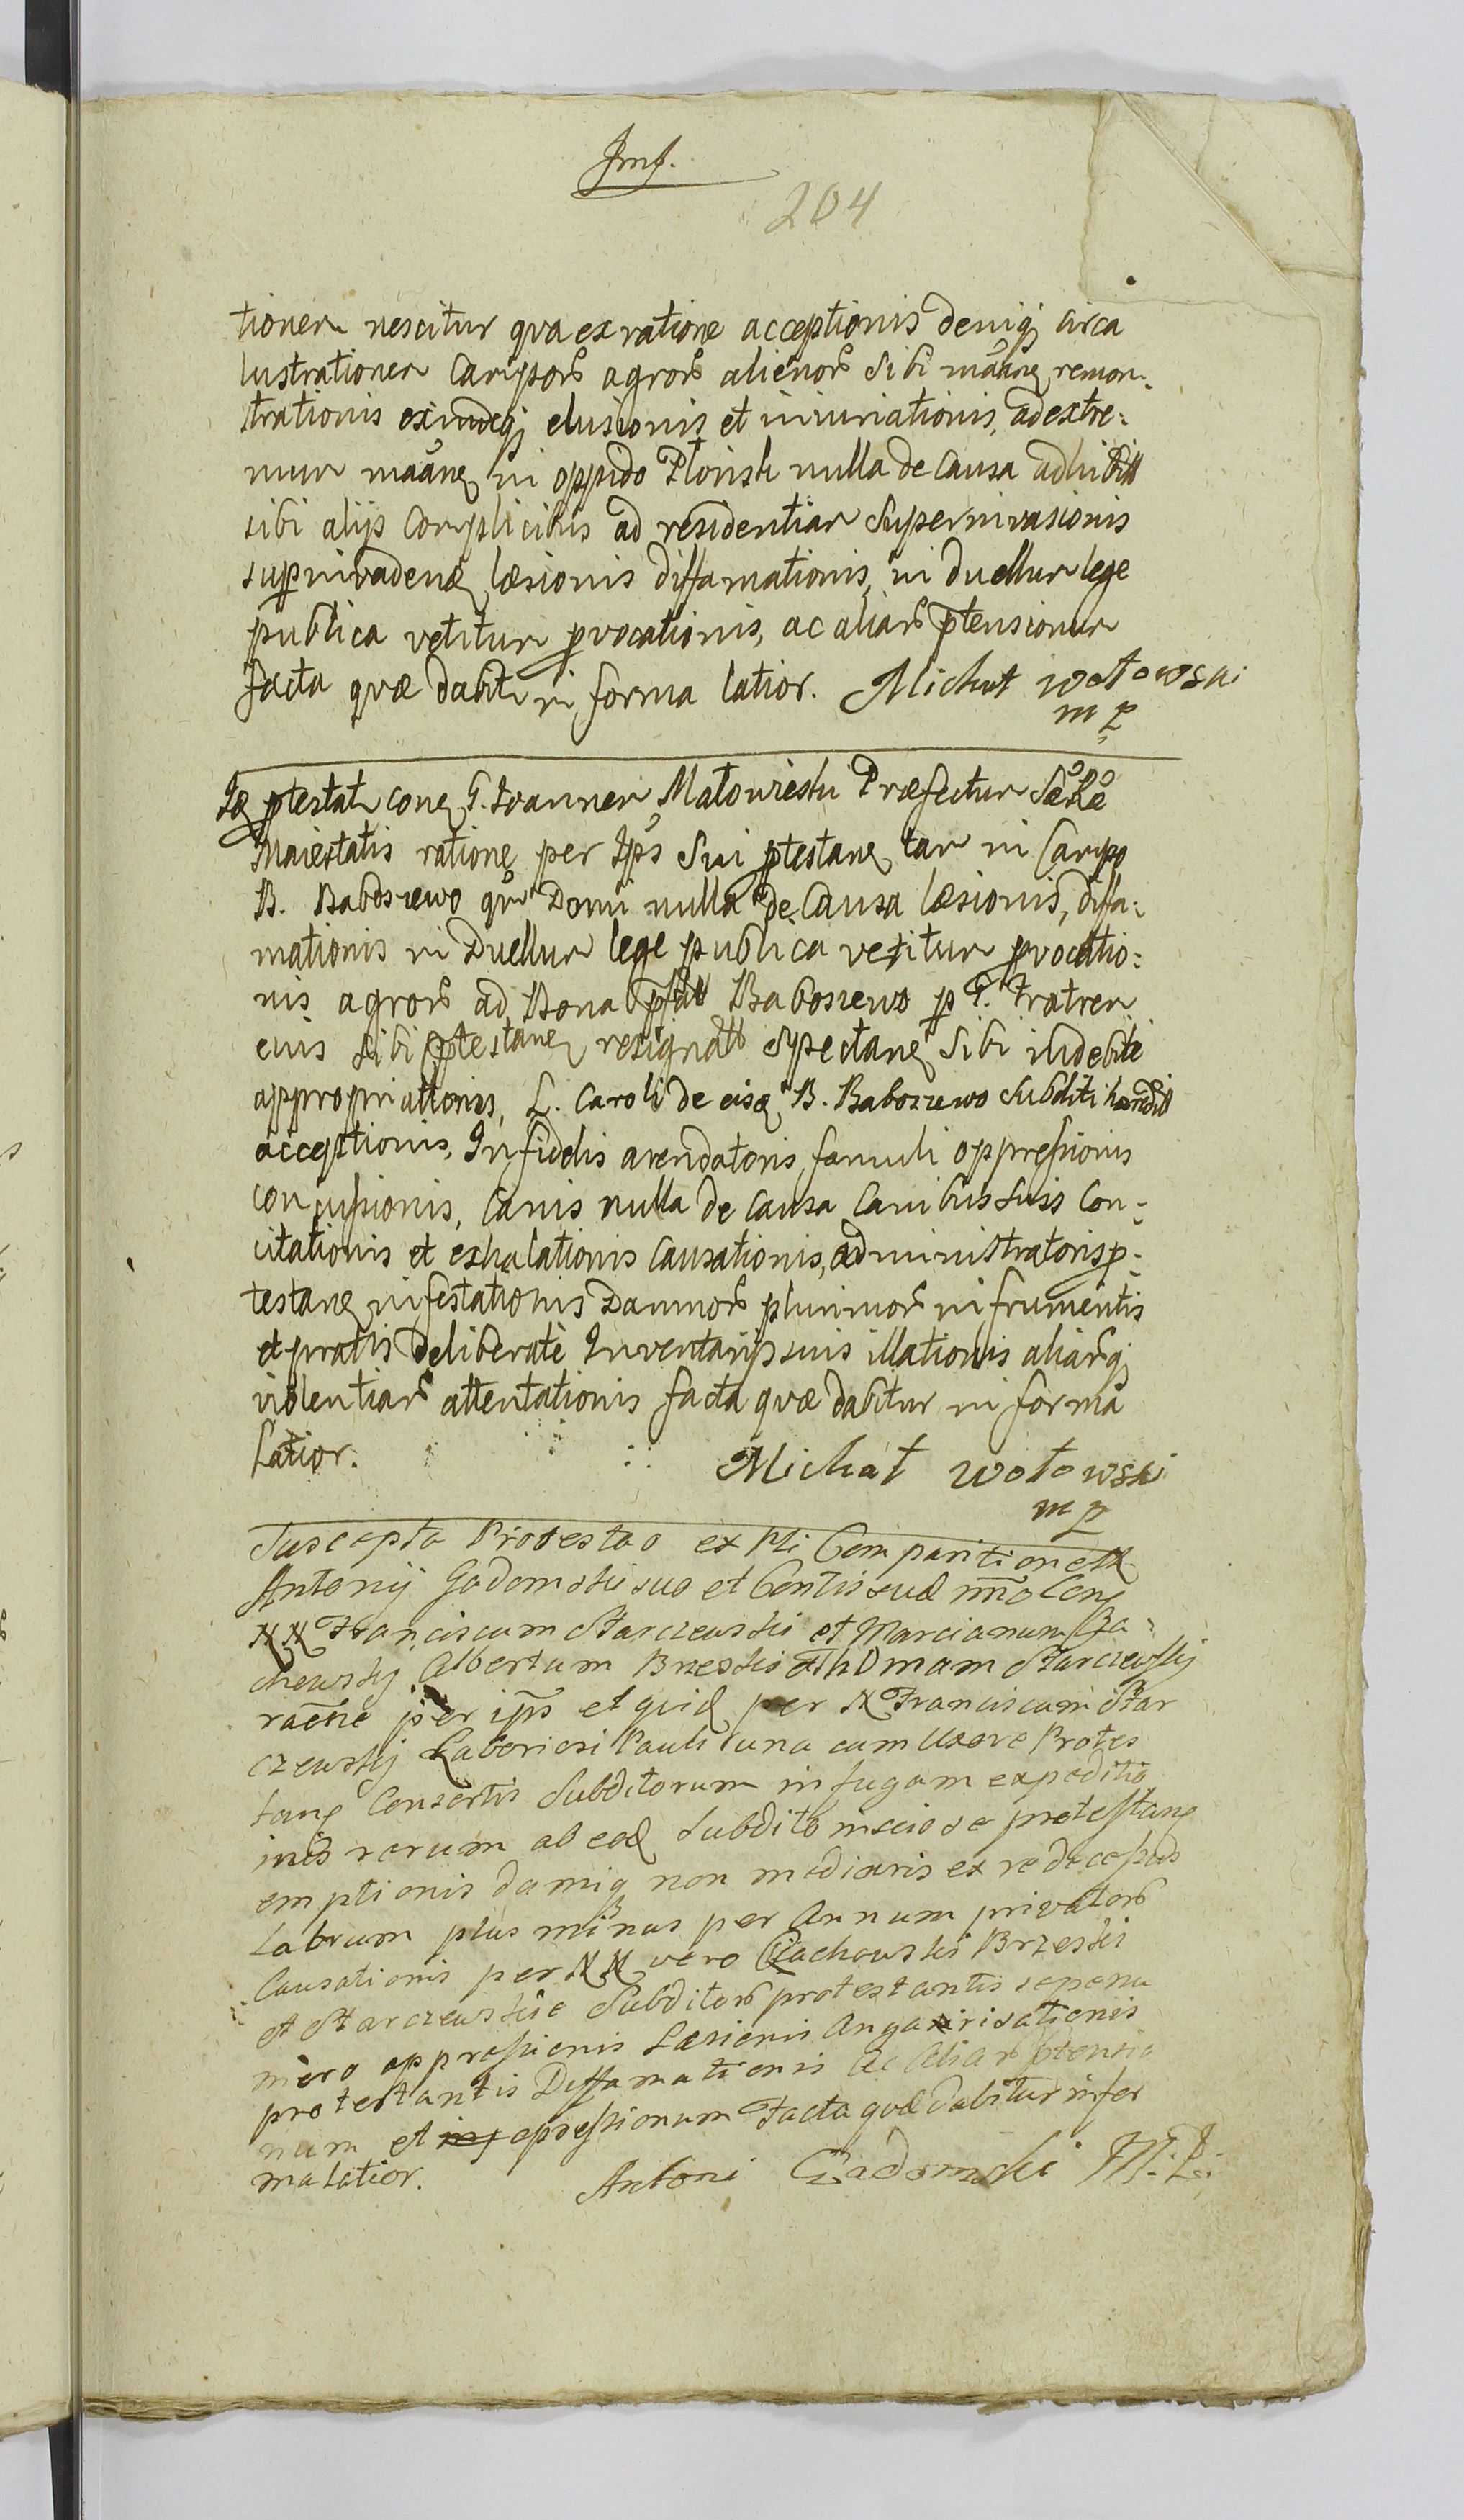 Jmf.
204
tionem nescitur qva ex ratione acceptionis deniq circa
lustrationem Campor agror alienor sibi remon-
trationis elusionis et iniuriationis, ad extre-
mum in oppido Plonsk nulla de causa adhibitt
sibi alijs complicibus ad residentiam Superinvasionis
læsionis diffamationis, in duellum lege
publica vetitum pvocationis, ac aliar ptensionum
facta qvæ dabit in forma latior. Michał wołowski
mp
Iq ptestat conq G. Ioannem Præfectum
Maiestatis ratione per Ips Sui ptestanq tam in Campo
B. Baboszewo qm Domi nulla de Causa læsionis, diffa-
mationis in Duellum lege publica vetitum pvocatio-
nis agror ad Bona Baboszewo p G. Fratrem
eius sibi ptestanq resignatt spectanq Sibi indebitè
appropriationis, L. Caroli de eisq B. Baboszewo Subditi
acceptionis, Infidelis arendatoris famuli oppressionis
concussionis, Canis nulla de Causa Canibus suis Con-
citationis et exhalationis Causationis, administratoris p-
testanq infestationis Damnor plurimor in frumentis
et pratis deliberatè Inventarijs suis illationis aliarq
violentiar attentationis facta qvæ dabitur in formâ
Latior. Michał wołowski
mp
Suscepta Protestao ex Comparitione
Antonij Gadomski suo et Contis suæ Conq
NN Franciscum Starczewski et Marcianum
Albertum Brzeski Thomam Starczewskij
per ips et quid per N Franciscum Star
czewskij Laboriosi Pauli una cum Uxore Protes
tanq Consortis Subditorum in fugam expeditio
rerum ab eod Subdito inscio se protestanq
emptionis non mediocris ex re
Labrum plus minus per Annum privator
Causationis per NN vero Ciachowski Brzeski
et Starczewskie Subditor protestantis sepenu
mero oppressionis Læsionis Angarisationis
protestantis Diffamationis Ac Aliar ptensio
num et opressionum Facta qvæ dabitur in for
ma Latior. Antoni Gadomski M.P.